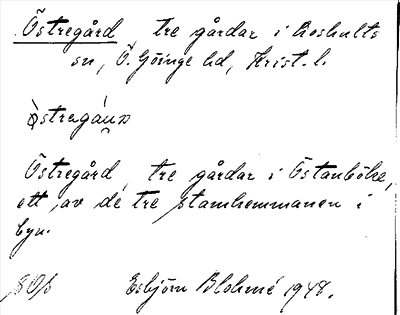 Östregård, tre gårdar i Loshults
sn, Ö. Göinge hd, Krist. l.
Östregård, tre gårdar i Östanböke,
ett av de tre stamhemmanen i
byn.
Esbjörn Blohmé 1948.